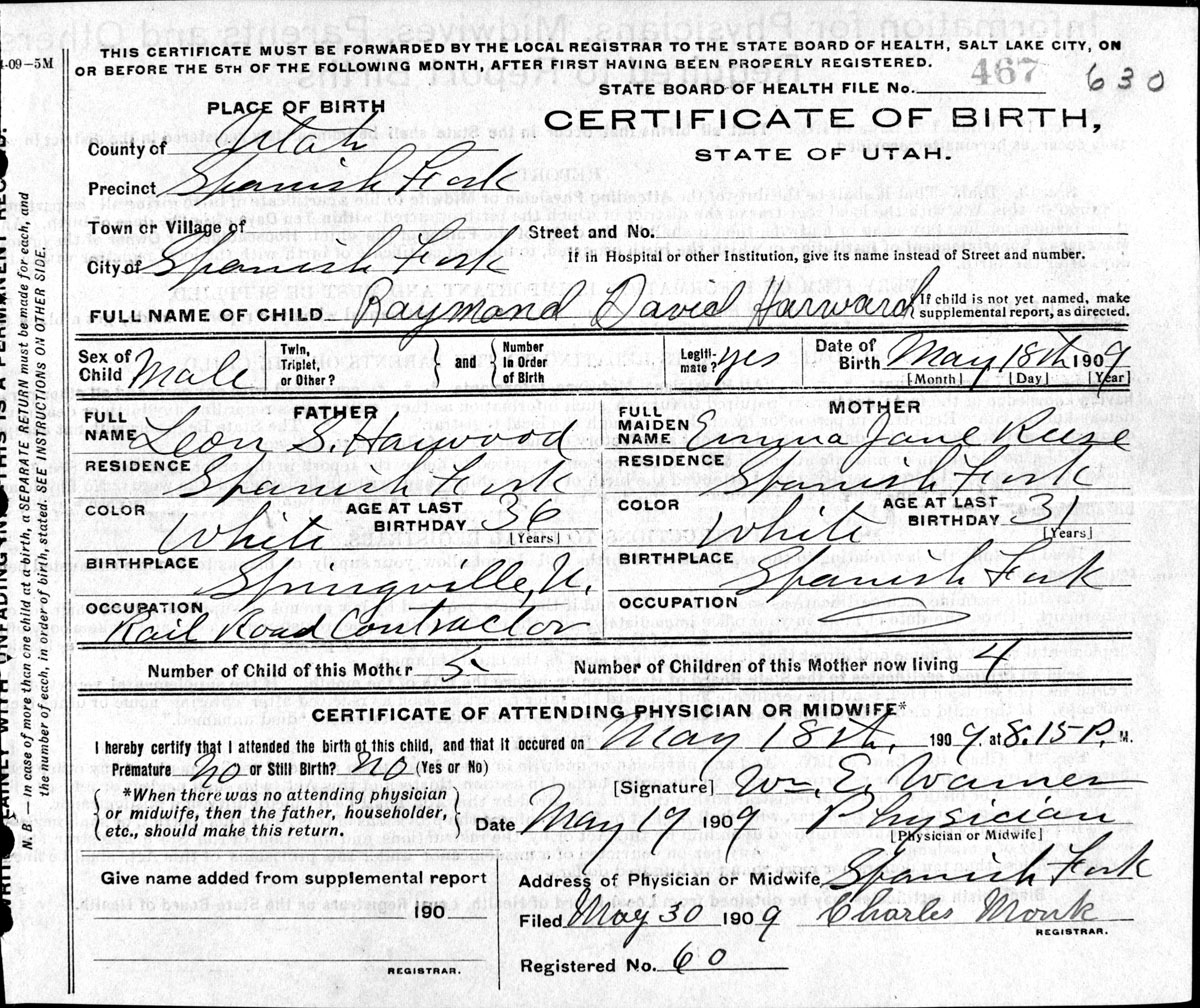 4-09-5M
THIS CERTIFICATE MUST BE FORWARDED BY THE LOCAL REGISTRAR TO THE STATE BOARD OF HEALTH, SALT LAKE CITY, ON
OR BEFORE THE 5TH OF THE FOLLOWING MONTH, AFTER FIRST HAVING BEEN PROPERLY REGISTERED.
STATE BOARD OF HEALTH FILE No. 467 630
PLACE OF BIRTH
CERTIFICATE OF BIRTH,
STATE OF UTAH.
County of Utah
Precinct Spanish Fork
Town or Village of
Street and No.
City of Spanish Fork
If in Hospital or other Institution, give its name instead of Street and number.
FULL NAME OF CHILD Raymond David Harward
{If child is not yet named, make
supplemental report, as directed.
Sex of Child Male
Twin, Triplet, or Other? } and { Number in Order of Birth
Legitimate? yes
Date of Birth May 18th 1909
[Month] [Day] [Year]
FATHER
FULL NAME Leon S. Haywood
RESIDENCE Spanish Fork
COLOR White
AGE AT LAST BIRTHDAY 36 [Years]
BIRTHPLACE Springville, U.
OCCUPATION Rail Road Contractor
MOTHER
FULL MAIDEN NAME Emma Jane Reese
RESIDENCE Spanish Fork
COLOR White
AGE AT LAST BIRTHDAY 31 [Years]
BIRTHPLACE Spanish Fork
OCCUPATION
Number of Child of this Mother 5
Number of Children of this Mother now living 4
CERTIFICATE OF ATTENDING PHYSICIAN OR MIDWIFE*
I hereby certify that I attended the birth of this child, and that it occured on May 18th, 1909. at 8.15 P. M.
Premature No or Still Birth? No (Yes or No)
*When there was no attending physician
or midwife, then the father, householder,
etc., should make this return.
[Signature] Wm. E. Warner
Date May 19 1909 Physician
[Physician or Midwife]
Give name added from supplemental report
190
REGISTRAR.
Address of Physician or Midwife Spanish Fork
Filed May 30 1909 Charles Monk
REGISTRAR.
Registered No. 60
N. B.—In case of more than one child at a birth, a SEPARATE RETURN must be made for each, and
the number of each, in order of birth, stated. SEE INSTRUCTIONS ON OTHER SIDE.